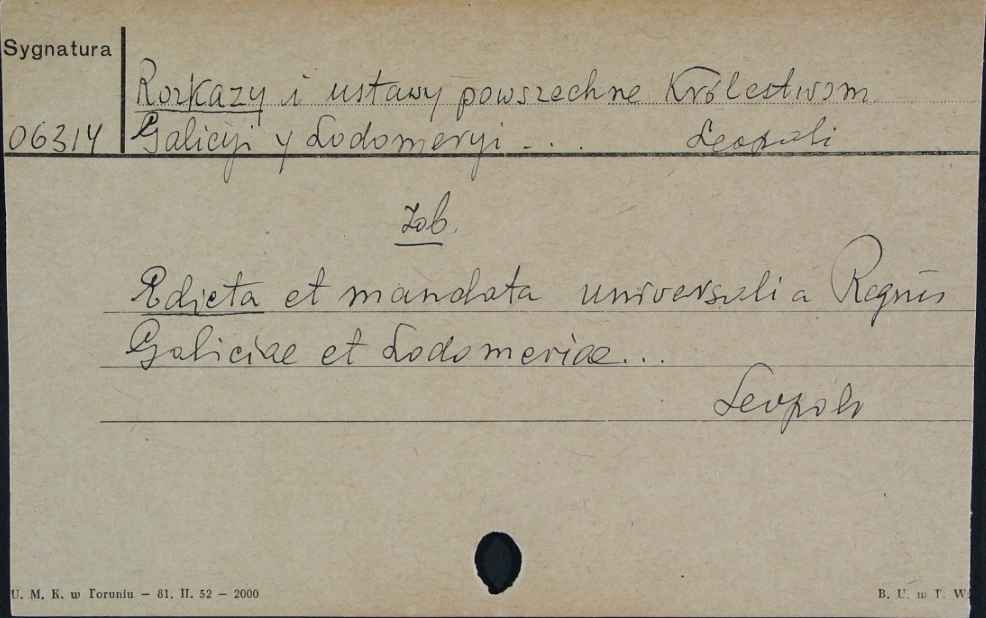 Sygnatura
Rozkazy i ustawy powszechne Królestwom
06314 Galicyi y Lodomeryi ... Leopoli
Zob.
Edicta et mandata universalia Regnis
Galiciae et Lodomeriae...
Leopoli
U. M. K. w Toruniu — 81. II. 52 — 2000
B. U. w T.